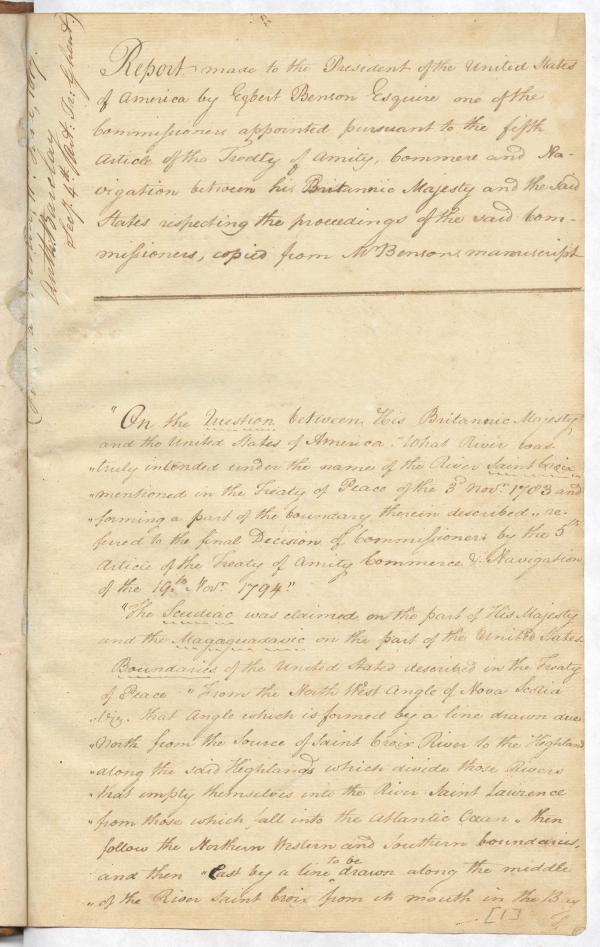 Report made to the President of the United States
of America by Egbert Benson Esquire one of the
Commissioners appointed pursuant to the fifth
Article of the Treaty of Amity, Commerce and Na-
vigation between his Britannic Majesty and the said
States respecting the proceedings of the said Com-
missioners, copied from Mr Bensons manuscript
"On the Question between His Britannic Majesty
and the United States of America. "What River was
"truly intended under the name of the River Saint Croix
"mentioned in the Treaty of Peace of the 3d Novr 1783 and
"forming a part of the boundary therein described" re-
ferred to the final Decision of Commissioners by the 5th
Article of the Treaty of Amity Commerce & Navigation
of the 19th Novr 1794."
"The Scudiac was claimed on the part of His Majesty
and the Magaguadavic on the part of the United States
Boundaries of the United States described in the Treaty
of Peace "From the North West Angle of Nova Scotia
"Viz. that Angle which is formed by a line drawn due
"North from the Source of Saint Croix River to the Highland
"along the said Highlands which divide those Rivers
"that empty themselves into the River Saint Lawrence
"from those which fall into the Atlantic Ocean. Then
follow the Northern Western and Southern boundaries,
and then "East by a line to be drawn along the middle
"of the River Saint Croix from its mouth in the Bay
[1]
Barclay